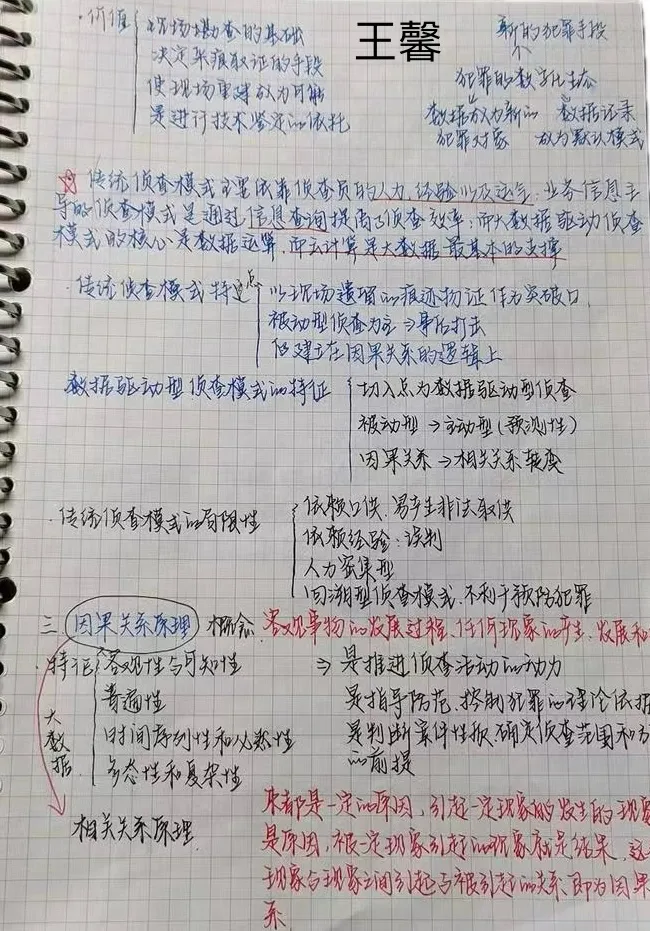 ·价值
现场勘查的基础
决定采痕取证的手段
使现场重建成为可能
是进行技术鉴定的依托
王馨
新的犯罪手段
犯罪的数字化生态
数据成为新的 数据记录
犯罪对象 成为默认模式
传统侦查模式主要依靠侦查员的人力、经验以及运气;业务信息主
导的侦查模式是通过信息查询提高了侦查效率;而大数据驱动侦查
模式的核心是数据运算,而云计算是大数据最基本的支撑
·传统侦查模式特点
以现场遗留的痕迹物证作为突破口,
被动型侦查为主→事后打击
仍建立在因果关系的逻辑上
数据驱动型侦查模式的特征
切入点为数据驱动型侦查
被动型→主动型(预测性)
因果关系→相关关系转变
·传统侦查模式的局限性
依赖口供,易产生非法取供
依赖经验:误判
人力密集型
回溯型侦查模式,不利于预防犯罪
三 因果关系原理 概念 客观事物的发展过程,任何现象的产生、发展和
·特征
客观性与可知性
普遍性
时间序列性和必然性
多态性和复杂性
⇒ 是推进侦查活动的动力
是指导防范、控制犯罪的理论依据
是判断案件性质,确定侦查范围和方
的前提
大数据
相关关系原理
来都是一定的原因,引起一定现象的发生的现象
是原因,被一定现象引起的现象就是结果,这
现象与现象之间引起与被引起的关系,即为因果
系